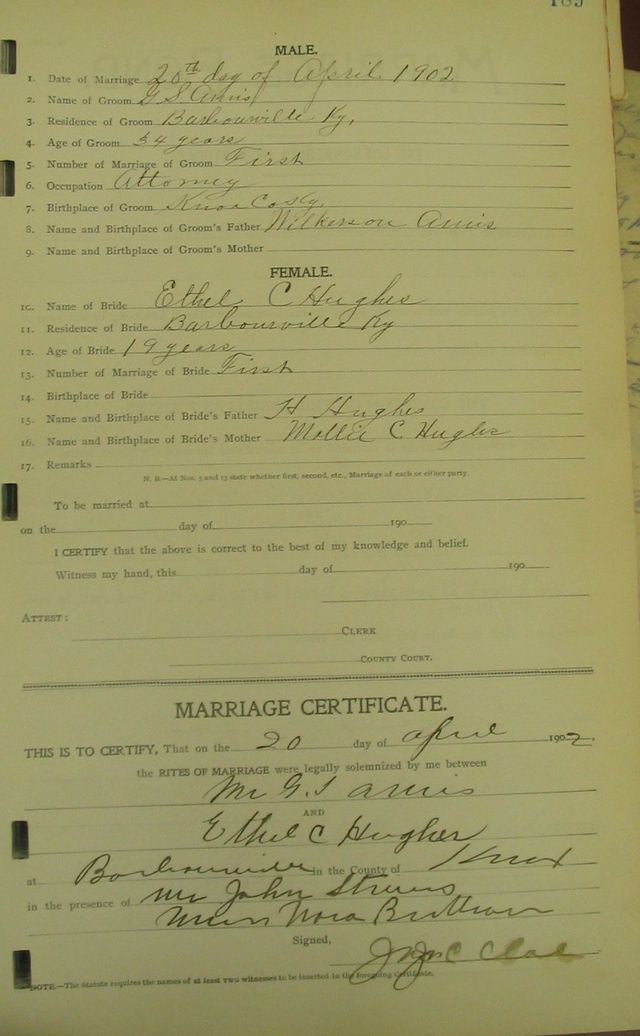 189
MALE.
1. Date of Marriage 20th day of April 1902
2. Name of Groom G S Amis
3. Residence of Groom Barbourville Ky,
4. Age of Groom 34 years
5. Number of Marriage of Groom First
6. Occupation Attorney
7. Birthplace of Groom Knox Co Ky.
8. Name and Birthplace of Groom's Father Wilkerson Amis
9. Name and Birthplace of Groom's Mother
FEMALE.
10. Name of Bride Ethel C Hughes
11. Residence of Bride Barbourville Ky
12. Age of Bride 19 years
13. Number of Marriage of Bride First
14. Birthplace of Bride
15. Name and Birthplace of Bride's Father H Hughes
16. Name and Birthplace of Bride's Mother Mollie C Hughes
17. Remarks
N. B.—At Nos. 5 and 13 state whether first, second, etc., Marriage of each or either party.
To be married at
on the day of 190
I CERTIFY that the above is correct to the best of my knowledge and belief.
Witness my hand, this day of 190
ATTEST:
CLERK
COUNTY COURT.
MARRIAGE CERTIFICATE.
THIS IS TO CERTIFY, That on the 20 day of April 1902.
the RITES OF MARRIAGE were legally solemnized by me between
Mr G. S Amis
AND
Ethel C Hughes
at Barbourville in the County of Knox
in the presence of Mr John
Nora
Signed,
NOTE.—The Statute requires the names of at least TWO witnesses to be inserted in the foregoing Certificate.